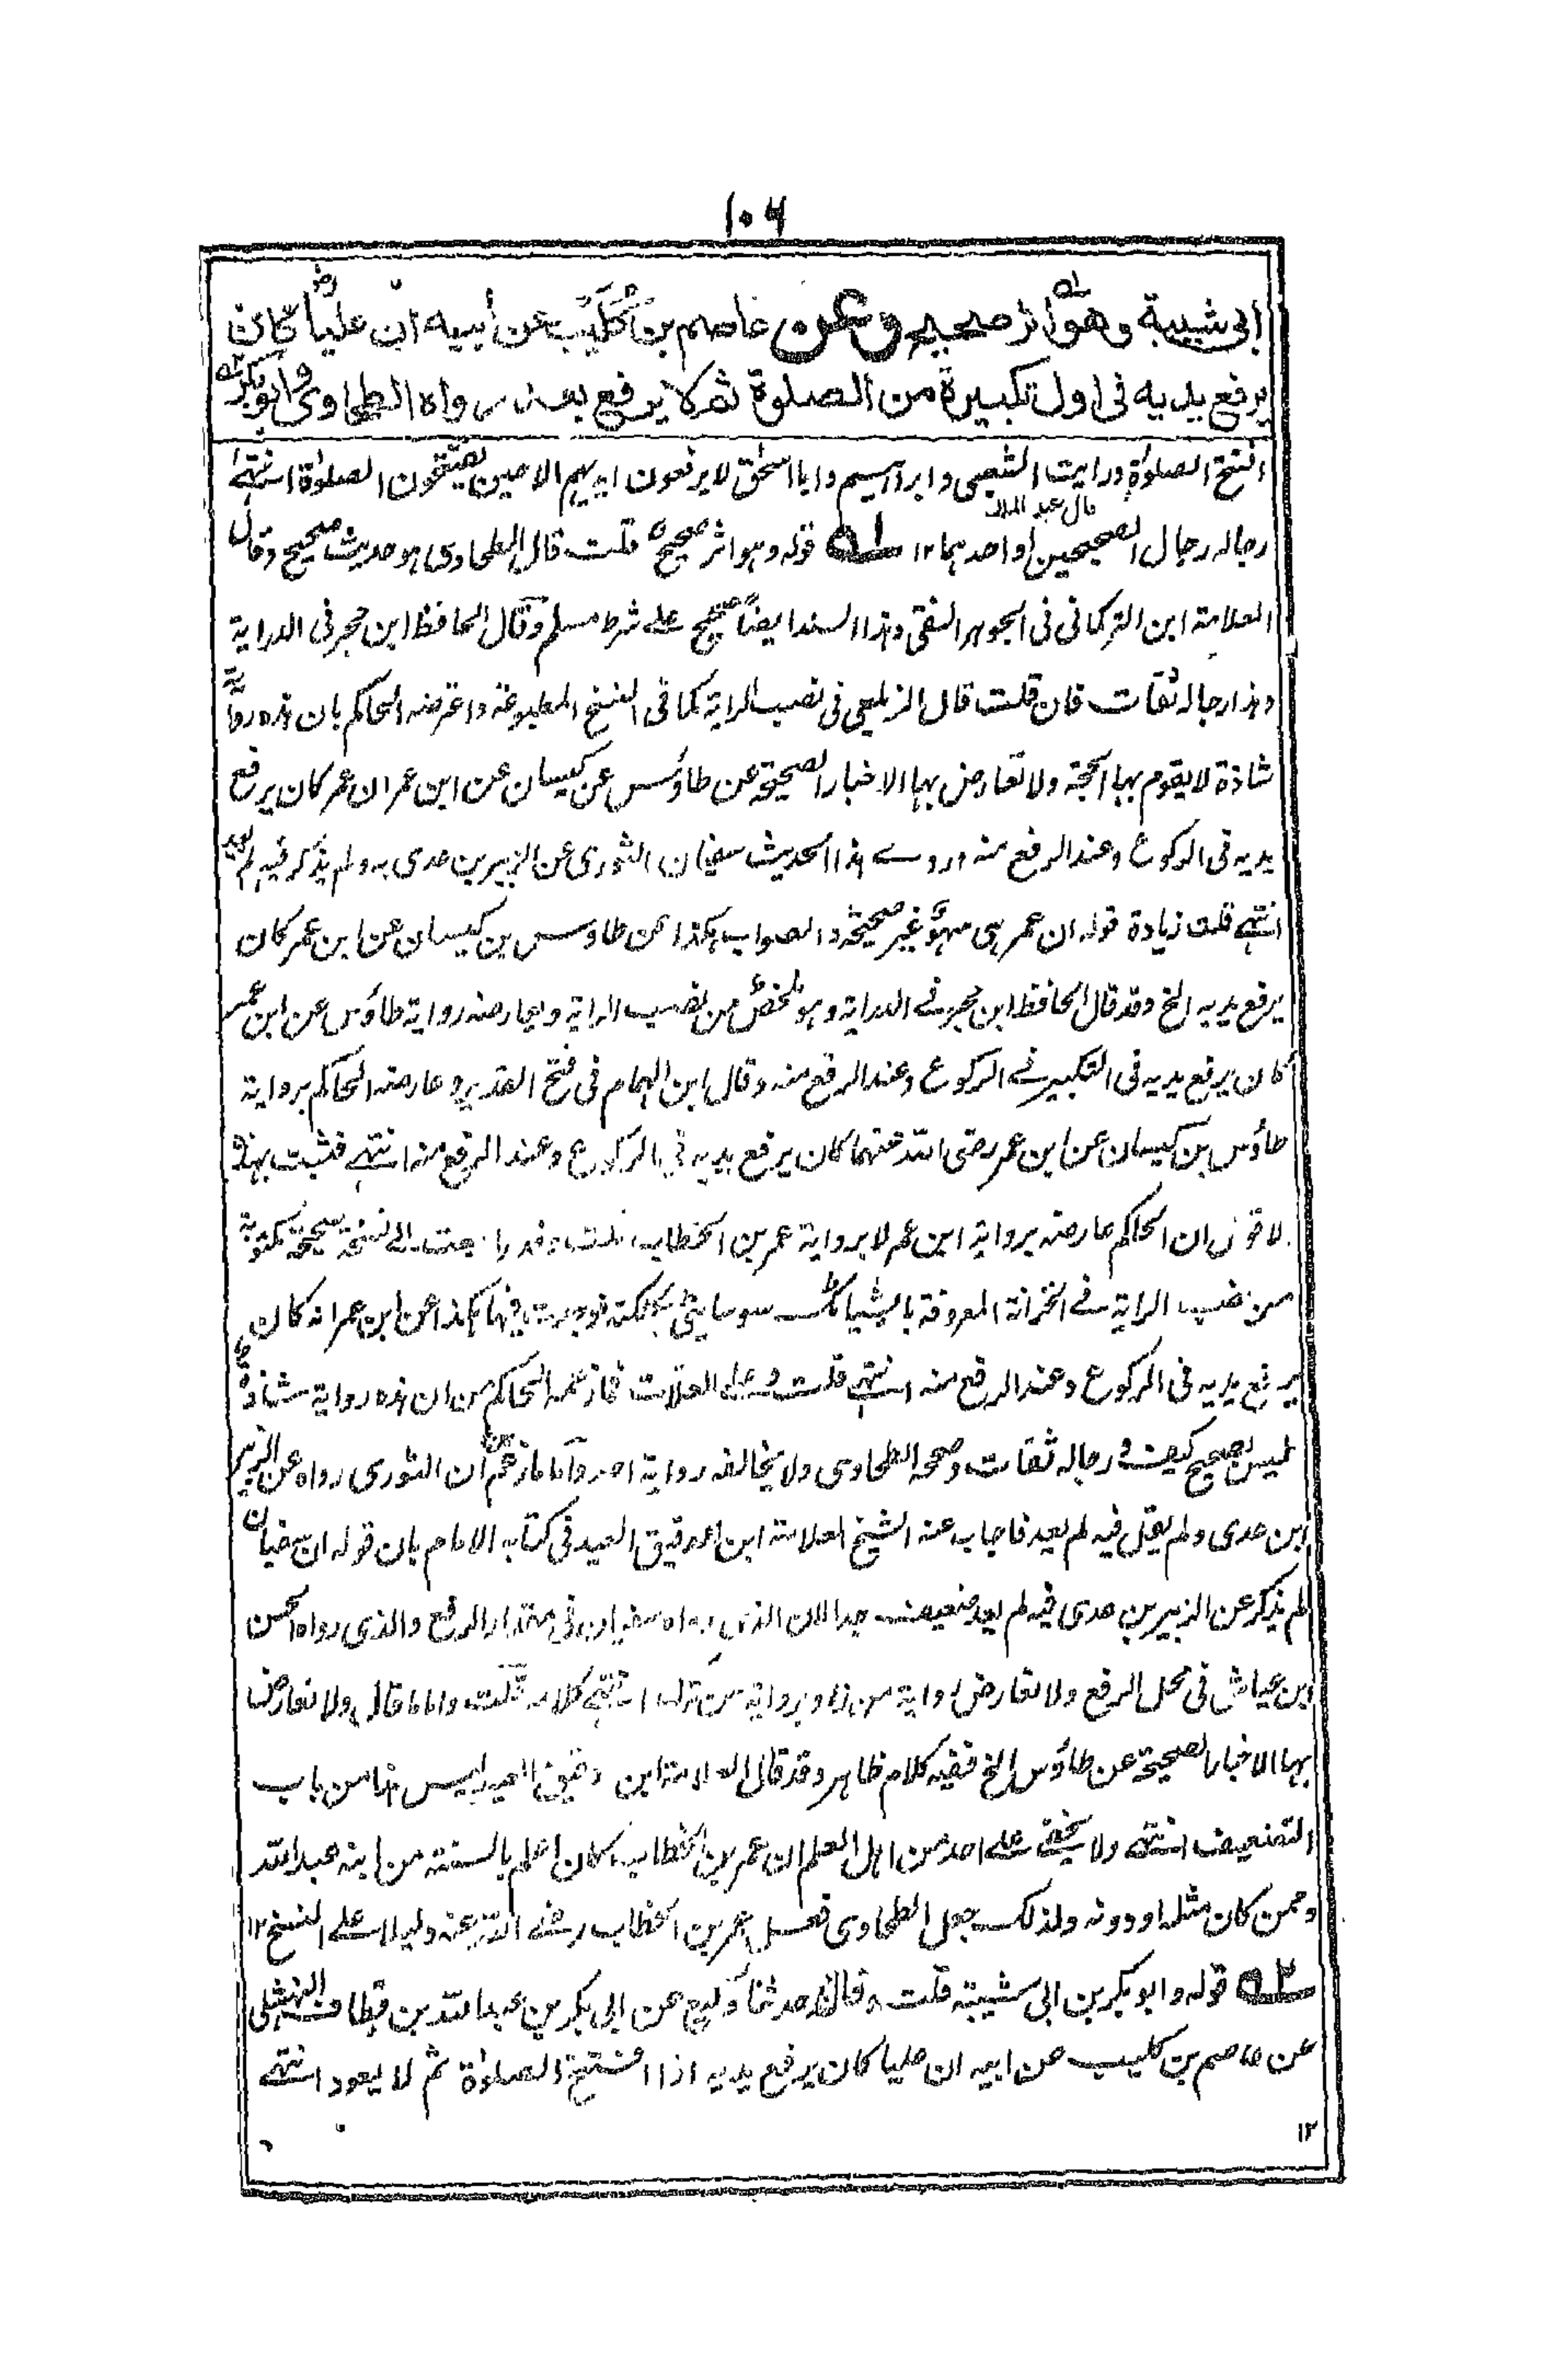 ١٠٦
ابی شیبة وهو اثر صحیح وعن عاصم بن کلیب عن ابیه ان علیا رض کان
یرفع یدیه فی اول تکبیرة من الصلوة ثم لا یرفع بعد رواه الطحاوی وابوبکر
افتتح الصلوٰة ورایت الشعبی وابراہیم وابا اسحٰق لا یرفعون ایدیہم الا حین یفتتحون الصلوٰة انتہے
قال عبد الملک
رجالہ رجال الصحیحین او احدہما ١٢ ١ہ قولہ وہو اثر صحیح قلت قال الطحاوی ہو حدیث صحیح وقال
العلامة ابن الترکمانی فی الجوہر النقی وہذا السند ایضًا صحیح علے شرط مسلم وقال الحافظ ابن حجر فی الدرایة
وہذا رجالہ ثقات فان قلت قال الزیلعی فی نصب الرایة کما فی النسخ المطبوعة واعترضہ الحاکم بان ہذہ روایة
شاذة لا یقوم بہا الحجة ولا تعارض بہا الاخبار الصحیحة عن طاؤس عن کیسان عن ابن عمر ان عمر کان یرفع
یدیہ فی الرکوع وعند الرفع منہ وروے ہذا الحدیث سفیان الثوری عن الزبیر بن عدی بہ ولم یذکر فیہ لم یعد
انتہے قلت زیادة قولہ ان عمر ہی سہو غیر صحیحة والصواب ہکذا عن طاوس بن کیسان عن ابن عمر کان
یرفع یدیہ الخ وقد قال الحافظ ابن حجر فے الدرایة وہو ملخص من نصب الرایة ویعارضہ روایة طاؤس عن ابن عمر
کان یرفع یدیہ فی التکبیر فے الرکوع وعند الرفع منہ وقال ابن الہمام فی فتح القدیر وعارضہ الحاکم بروایة
طاؤس بن کیسان عن ابن عمر رضی اللہ عنہما کان یرفع یدیہ فی الرکوع وعند الرفع منہ انتہے فثبت بہذہ
الاقوال ان الحاکم عارضہ بروایة ابن عمر لا بروایة عمر بن الخطاب قلت وقد راجعت الے نسخة صحیحة مکتوبة
من نصب الرایة فے الخزانة المعروفة بایشیاٹک سوسایٹی بکلکتہ فوجدت فیہا ہکذا عن ابن عمر انہ کان
یرفع یدیہ فی الرکوع وعند الرفع منہ انتہے قلت وعلے العلات فما زعمہ الحاکم من ان ہذہ روایة شاذة
لیس بصحیح کیف ورجالہ ثقات وصححہ الطحاوی ولا یخالفہ روایة احد واما ما زعم ان الثوری رواہ عن الزبیر
ابن عدی ولم یقل فیہ لم یعد فاجاب عنہ الشیخ العلامة ابن الدقیق العید فی کتابہ الامام بان قولہ ان سفیان
لم یذکر عن الزبیر بن عدی فیہ لم یعد ضعیف جدا لان الذی رواہ سفیان فی مقدار الرفع والذی رواہ الحسن
ابن عیاش فی محل الرفع ولا تعارض روایة من زاد بروایة من ترک انتہے کلامہ قلت واما ما قال ولا تعارض
بہا الاخبار الصحیحة عن طاؤس الخ ففیہ کلام ظاہر وقد قال العلامة ابن دقیق العید لیس ہذا من باب
التضعیف انتہے ولا یخفے علے احد من اہل العلم ان عمر بن الخطاب کان اعلم بالسنة من ابنہ عبداللہ
وممن کان مثلہ او دونہ ولذلک جعل الطحاوی فعل عمر بن الخطاب رضے اللہ عنہ دلیلا علے النسخ ١٢
٢ہ قولہ وابوبکر بن ابی شیبة قلت وقال حدثنا وکیع عن ابی بکر بن عبداللہ بن قطاف النہشلی
عن عاصم بن کلیب عن ابیہ ان علیا کان یرفع یدیہ اذا افتتح الصلوٰة ثم لا یعود انتہے
١٢